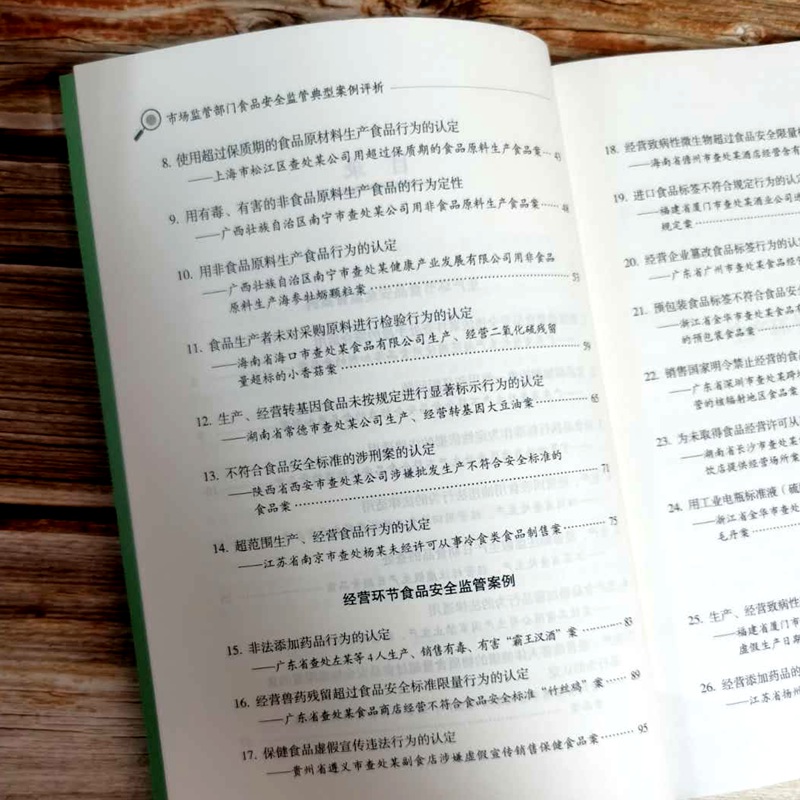 市场监管部门食品安全监管典型案例评析
8. 使用超过保质期的食品原材料生产食品行为的认定
——上海市松江区查处某公司用超过保质期的食品原料生产食品案… 43
9. 用有毒、有害的非食品原料生产食品的行为定性
——广西壮族自治区南宁市查处某公司用非食品原料生产食品案…… 48
10. 用非食品原料生产食品行为的认定
——广西壮族自治区南宁市查处某健康产业发展有限公司用非食品
原料生产海参牡蛎颗粒案…… 53
11. 食品生产者未对采购原料进行检验行为的认定
——海南省海口市查处某食品有限公司生产、经营二氧化硫残留
量超标的小香菇案…… 59
12. 生产、经营转基因食品未按规定进行显著标示行为的认定
——湖南省常德市查处某公司生产、经营转基因大豆油案…… 65
13. 不符合食品安全标准的涉刑案的认定
——陕西省西安市查处某公司涉嫌批发生产不符合安全标准的
食品案…… 71
14. 超范围生产、经营食品行为的认定
——江苏省南京市查处杨某未经许可从事冷食类食品制售案…… 75
经营环节食品安全监管案例
15. 非法添加药品行为的认定
——广东省查处左某等4人生产、销售有毒、有害“霸王汉酒”案…… 83
16. 经营兽药残留超过食品安全标准限量行为的认定
——广东省查处某食品商店经营不符合食品安全标准“竹丝鸡”案…… 89
17. 保健食品虚假宣传违法行为的认定
——贵州省遵义市查处某副食店涉嫌虚假宣传销售保健食品案…… 95
18. 经营致病性微生物超过食品安全限量
——海南省儋州市查处某酒店经营含有
19. 进口食品标签不符合规定行为的认定
——福建省厦门市查处某酒业公司进
规定案
20. 经营企业篡改食品标签行为的认
——广东省广州市查处某食品经
21. 预包装食品标签不符合食品安
——浙江省金华市查处某食品
的预包装食品案
22. 销售国家明令禁止经营的食
——广东省深圳市查处某跨
营的核辐射地区食品案
23. 为未取得食品经营许可从
——湖南省长沙市查处某
饮店提供经营场所案
24. 用工业电瓶标准液（硫
——浙江省金华市查处
毛丹案
25. 生产、经营致病性
——福建省厦门市
虚假生产日期
26. 经营添加药品的
——江苏省扬州